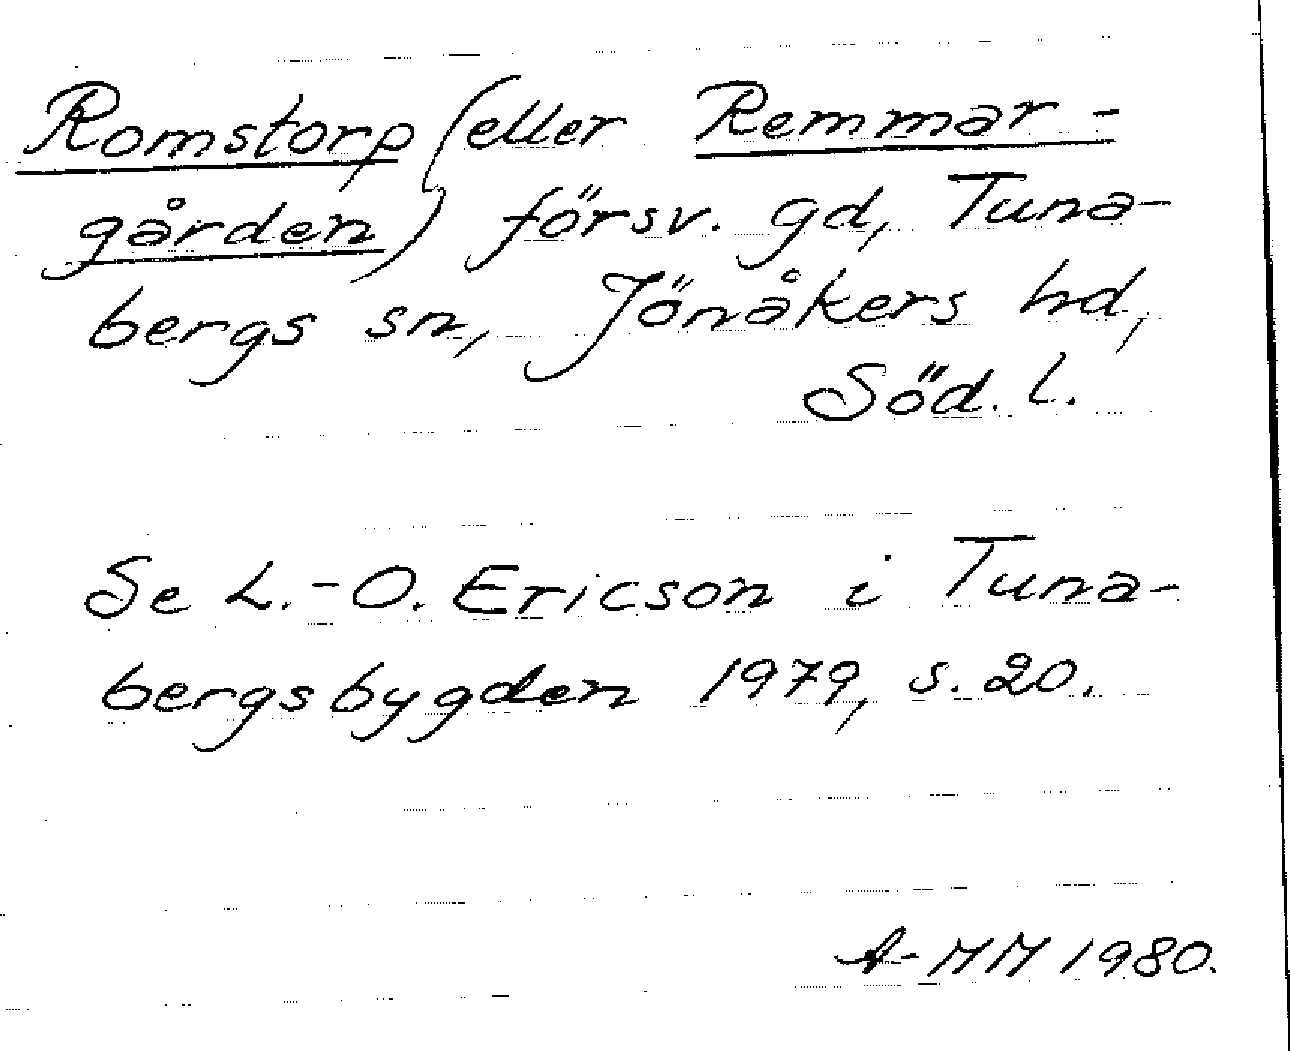 Romstorp (eller Remmar-
gården) försv. gd, Tuna-
bergs sn, Jönåkers hd,
Söd. l.
Se L.-O. Ericson i Tuna-
bergsbygden 1979, s. 20.
A-MM 1980.